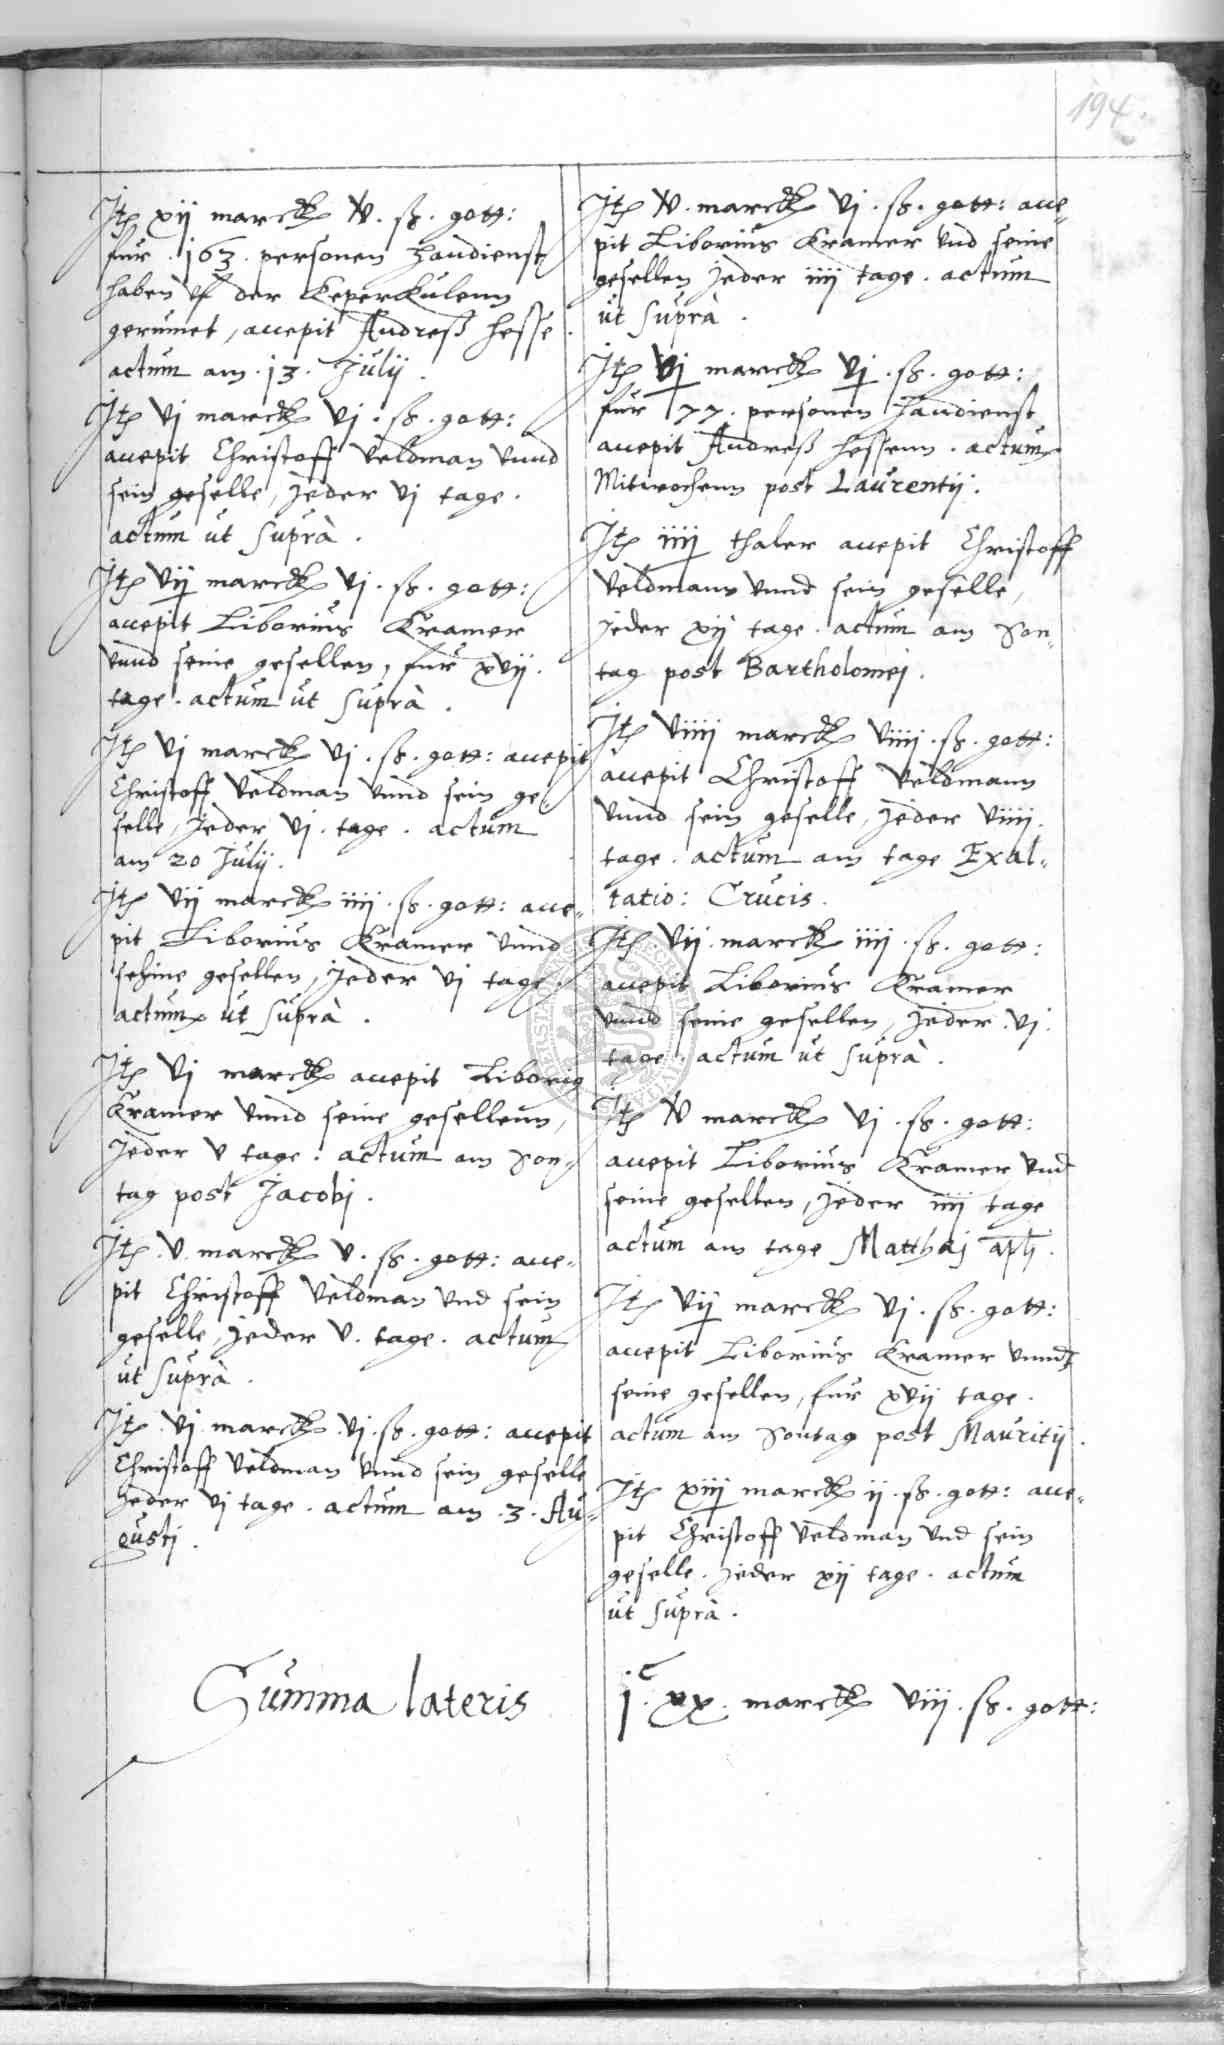 194.
Itē xii marck̄ v. ß. gott:
fur 163. personen handienst
haben vf der Keperkulenn
gerumet, accepit Andreß Hesse
actum am 13. Julij.
Itē vj marck̄ vj. ß. gott:
accepit Christoff Veldman vnnd
sein geselle, jeder vj tage.
actum ut suprà.
Itē vij marck̄ vj. ß. gott:
accepit Liborius Kramer
vnnd seine gesellen, fur xvij.
tage. actum ut suprà.
Itē vj marck̄ vj. ß. gott: accepit
Christoff Veldman vnnd sein ge-
selle, jeder vj. tage. actum
am 20 Julij.
Itē vij marck̄ iiij. ß. gott: acce-
pit Liborius Kramer vnnd
sehine gesellen, jeder vj tage.
actum ut suprà.
Itē vj marck̄ accepit Liborig
Kramer vnnd seine gesellenn,
jeder v tage. actum am Son-
tag post Jacobj.
Itē v marck̄ v. ß. gott: acce-
pit Christoff Veldman vnd sein
geselle, jeder v. tage. actum
ut suprà.
Itē vj. marck̄ vj. ß. gott: accepit
Christoff Veldman vnnd sein geselle
jeder vj tage. actum am .3. Au-
gustj.
Itē v. marck̄ vj. ß. gott: acce-
pit Liborius Kramer vnd seine
gesellen jeder iiij tage. actum
ut suprà.
Itē vj marck̄ vj. ß. gott:
fur 77. personen handienst
accepit Andreß Hessenn. actum
Mitwochenn post Laurentij.
Itē iiij thaler accepit Christoff
Veldmans vnnd sein geselle,
jeder xij tage. actum am Son-
tag post Bartholomej.
Itē viiij marck̄ viiij. ß. gott:
accepit Christoff Veldmann
vnnd sein geselle, jeder viiij.
tage. actum am tage Exal-
tatio: Crucis.
Itē vij. marck̄ iiij. ß. gott:
accepit Liborius Kramer
vnnd seine gesellen, jeder vj.
tage. actum ut suprà.
Itē v marck̄ vj. ß. gott:
accepit Liborius Kramer vnd
seine gesellen, jeder iiij tage
actum am tage Matthaj apłi.
Itē vij marck̄ vj. ß. gott:
accepit Liborius Kramer vnnd
seine gesellen, fur xvij tage.
actum am Sontag post Mauritij.
Itē xiij marck̄ ij. ß. gott: acce-
pit Christoff Veldman vnd sein
geselle. jeder xij tage. actum
ut suprà.
Summa lateris jᶜ. xx. marck̄ viij. ß. gott: